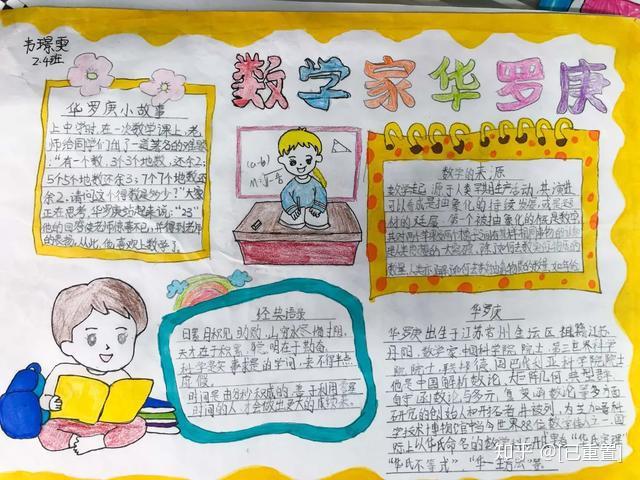 韦璟雯
2.4班
数学家华罗庚
华罗庚小故事
上中学时,在一次数学课上,老
师给同学们出了一道著名的难题
:"有一个数,3个3个地数,还余2;
5个5个地数还余3;7个7个地数还
余2,请问这个得数是多少?"大家
正在思考,华罗庚站起来说:"23"
他的回答使老师惊喜不已,并得到老师
的表扬,从此,他喜欢上数学了。
数学的来源
数学起源于人类早期生产活动,其演进
可以看成是抽象化的持续发展,或是题
材的延展。第一个被抽象化的概念是数字
经典语录
日累月积见功勋,山穷水尽惜寸阴。
天才在于积累,聪明在于勤奋。
科学是实事求是的学问,来不得半点
虚假。
时间是由分秒积成的,善于利用零星
时间的人,才会做出更大的成绩来。
华罗庚
华罗庚出生于江苏常州金坛区,祖籍江苏
丹阳,数学家,中国科学院院士,第三世界科学
他是中国解析数论,矩阵几何,典型群
自守函数论与多元复变函数论等多方面
研究的创始人和开拓者,并被列为芝加哥科
学技术博物馆中当今世界88位数学伟人之一,国
际上以华氏命名的数学科研成果有"华氏定理"
"华氏不等式","华—王方法"等。
知乎 @[已重置]